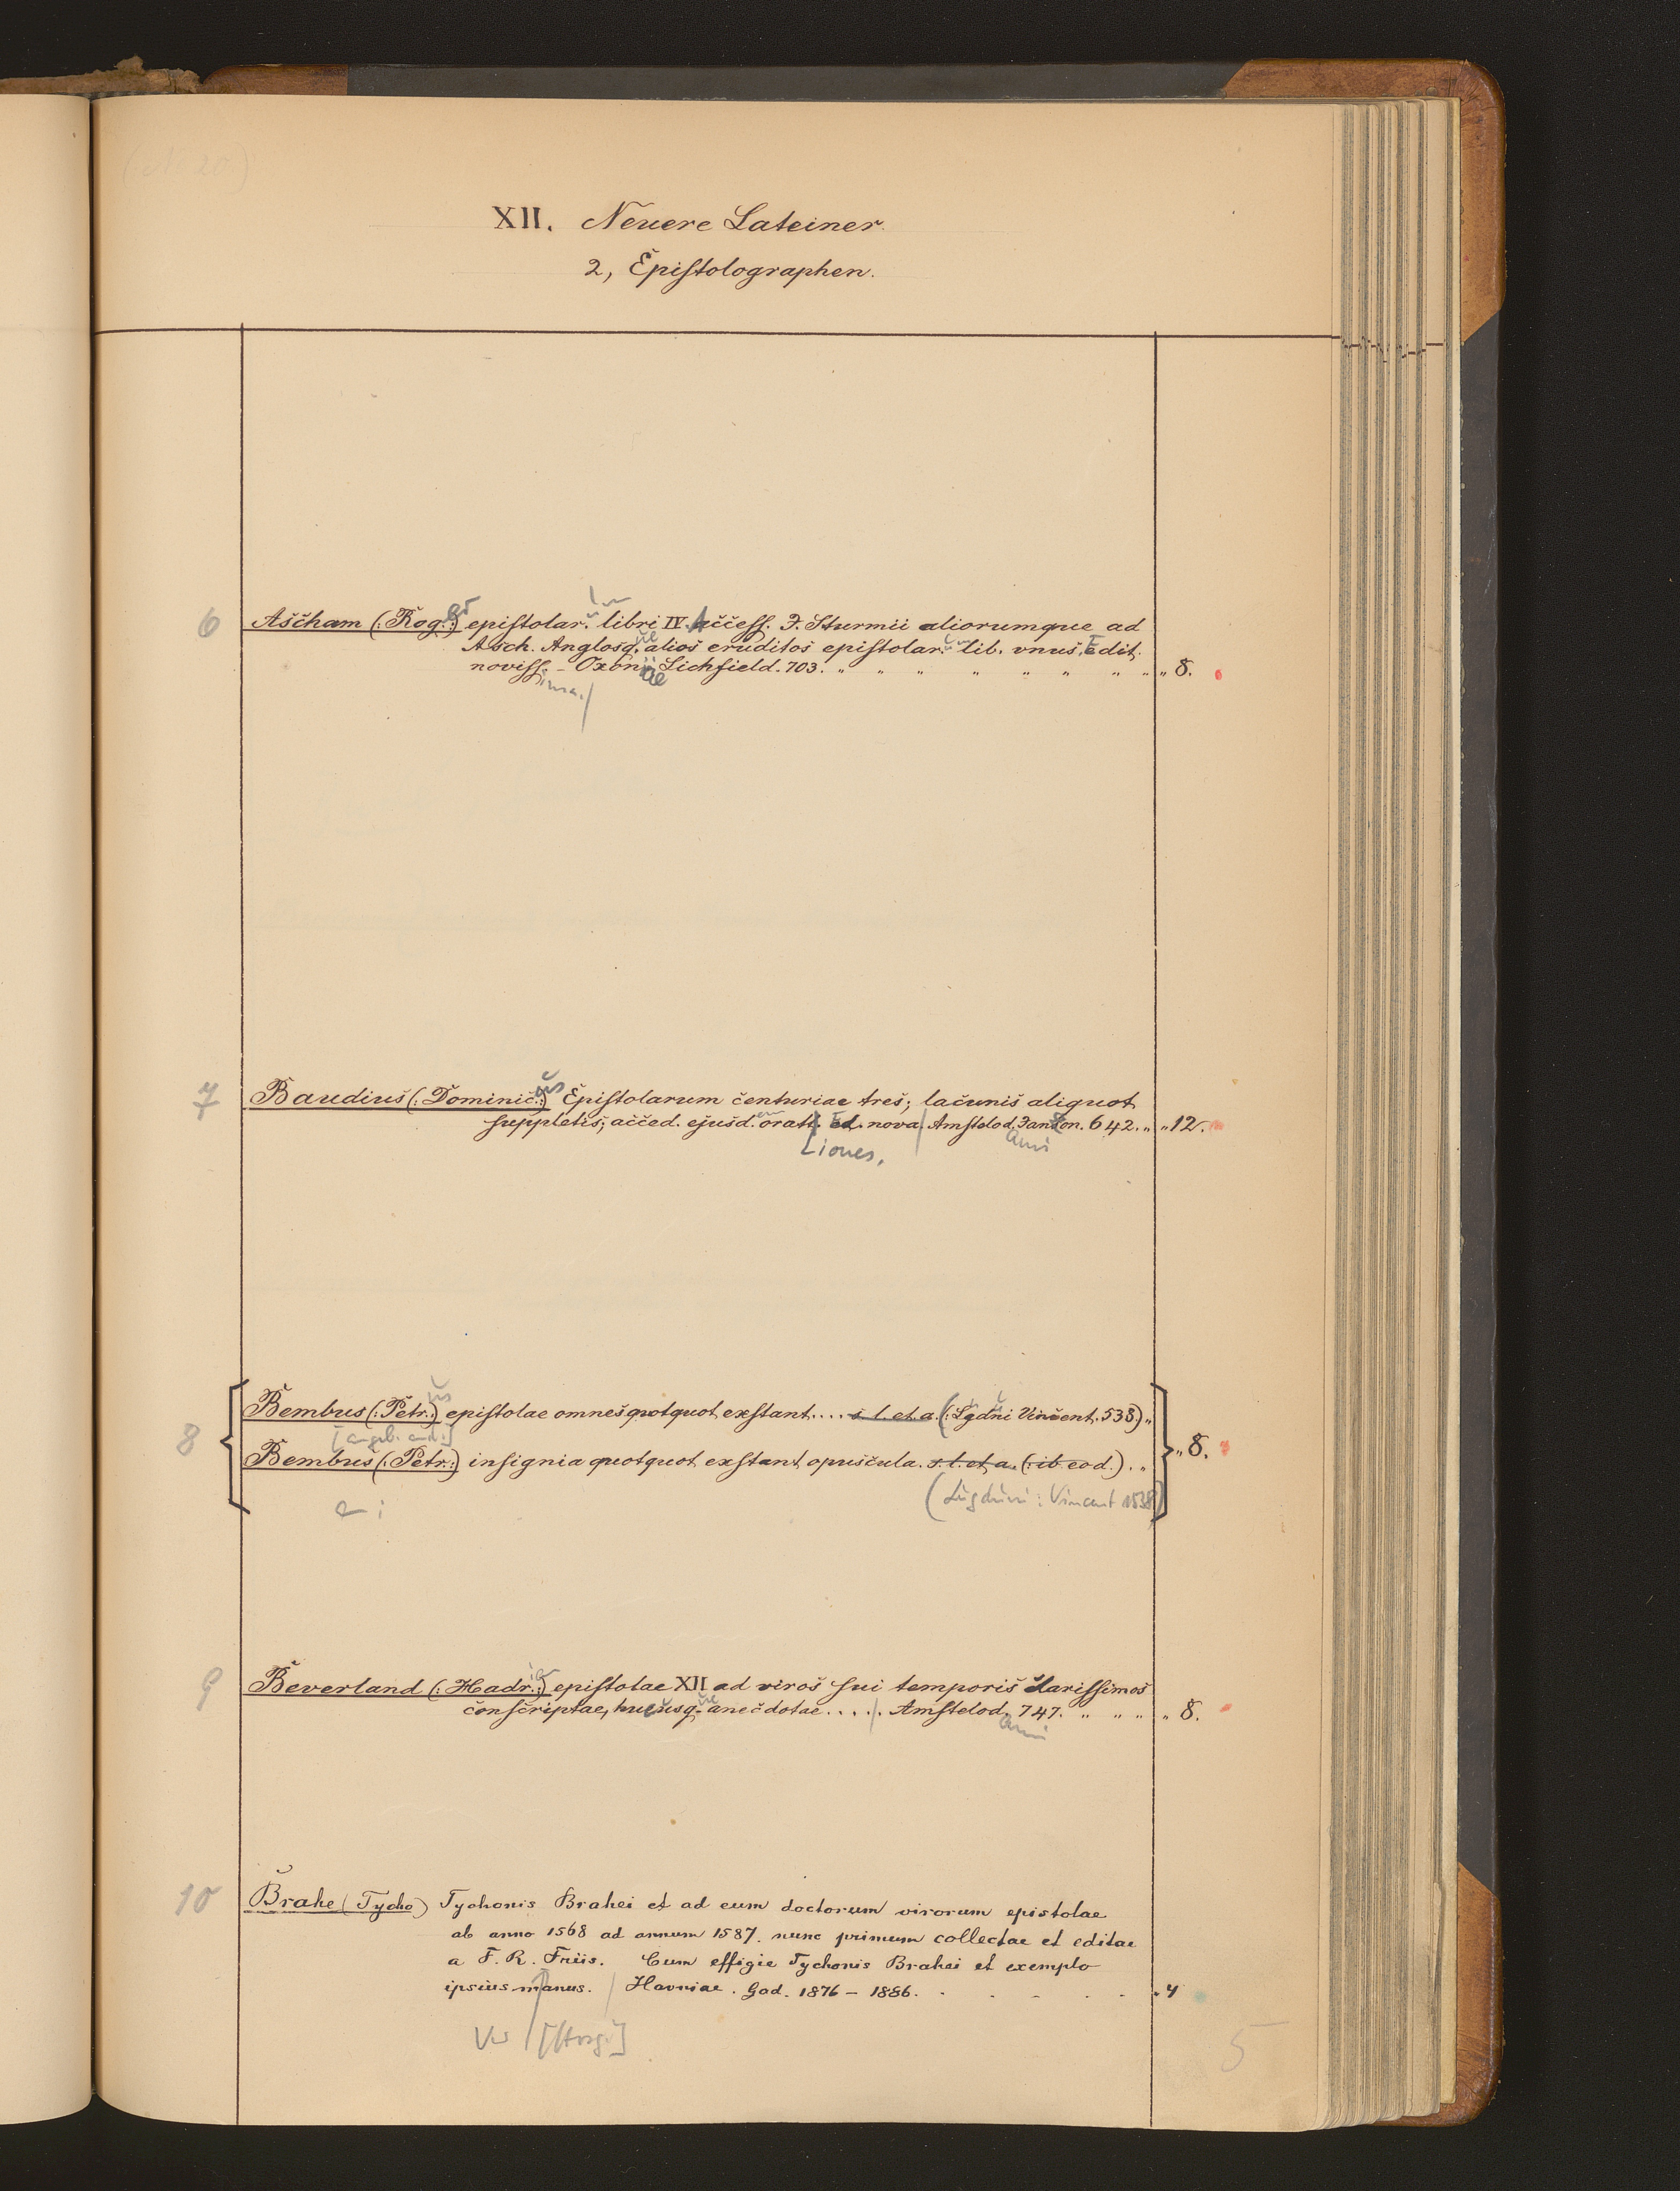 XII. Neuere Lateiner.
2, Epistolographen.
6 Ascham (: Rog. :) epistolar. libri IV. Access. J. Sturmii aliorumque ad
Asch. Anglosq. alios eruditos epistolar. lib. vnus. Edit.
noviss. - Oxonii Lichfield. 703. „ „ „ „ „ „ „ „ „ 8.
ima.
7 Baudius (: Dominic. :) Epistolarum centuriae tres; lacunis aliquot
suppletis; acced. ejusd. oratt. Ed. nova. Amstelod. Janson. 642. „ „ 12.
iones,
8 Bembus (: Petr. :) epistolae omnes quotquot exstant.... s. l. et a. (: Lgdni Vincent. 538.) „
Bembus (: Petr. :) insignia quotquot exstant opuscula. s. l. et a. (: ib eod.) . „ „ 8.
(Lugduni: Vincent 1538)
9 Beverland (: Hadr. :) epistolae XII ad viros sui temporis clarissimos
conscriptae, hucusq. anecdotae..... Amstelod. 747. „ „ „ „ 8.
10 Brahe (Tycho) Tychonis Brahei et ad eum doctorum virorum epistolae
ab anno 1568 ad annum 1587. nunc primum collectae et editae
a F. R. Friis. Cum effigie Tychonis Brahei et exemplo
ipsius manus. Havniae. Gad. 1876 - 1886. . . . . . 4
5